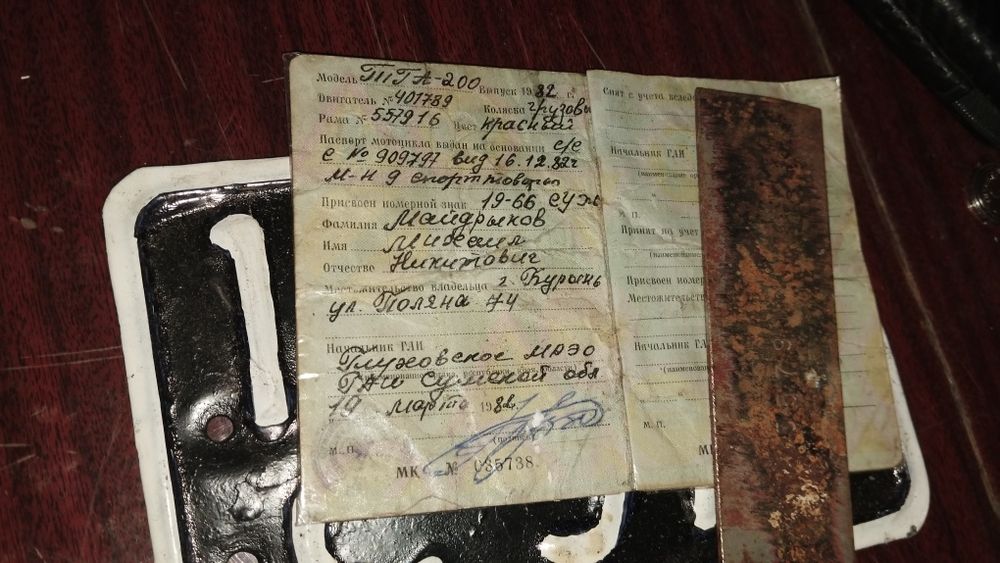 Модель ТГА-200 Выпуск 1982 г.
Двигатель № 401789 Коляска грузовы
Рама № 557916 Цвет красный
Паспорт мотоцикла выдан на основании с/с
с № 909797 вид 16.12.82г
м-н 9 спорттовары
Присвоен номерной знак 19-66 СУМ
Фамилия
Имя Михаил
Отчество Никитович
Местожительство владельца г.
ул. Поляна 44
Начальник ГАИ
Глуховское МРЭО
ГАИ Сумской обл
19 марта 198
(подпись)
М. П.
МК № 035738
Снят с учета вследс
Начальник ГАИ
М. П.
Принят на учет
Присвоен номер
Местожительств
Начальник ГА
М. П.